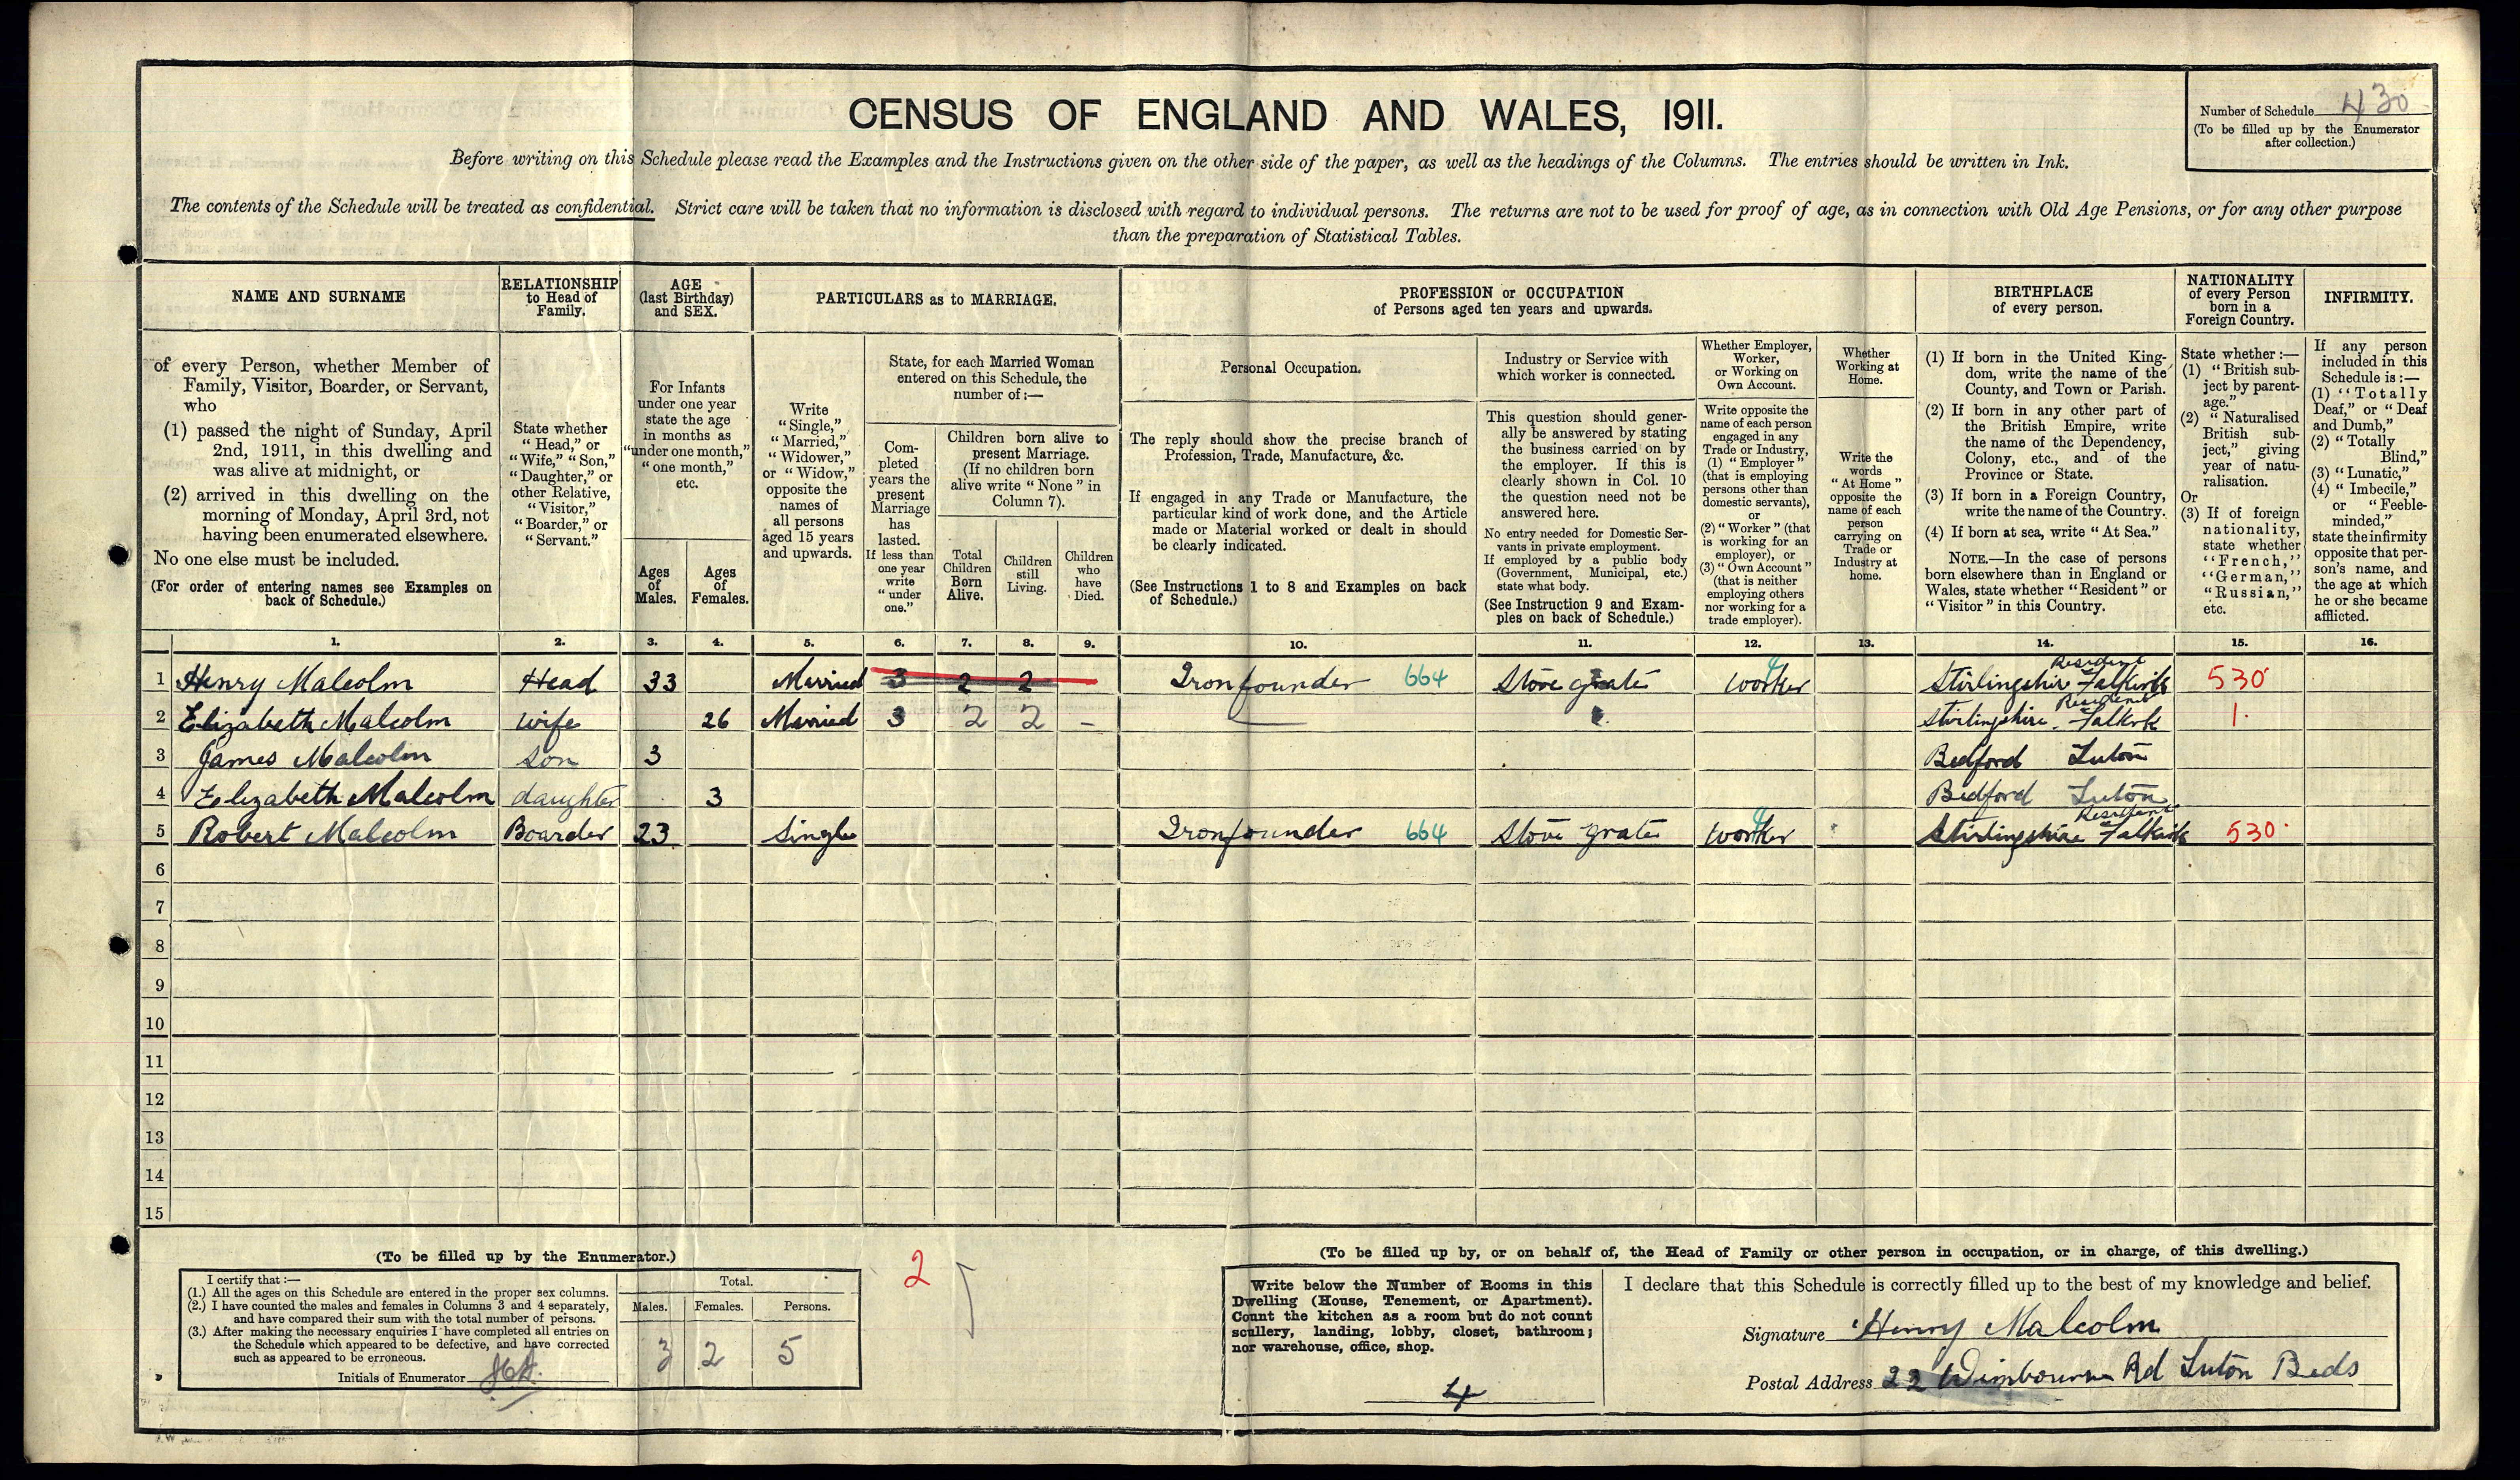 CENSUS OF ENGLAND AND WALES, 1911.
Number of Schedule 430
(To be filled up by the Enumerator
after collection.)
Before writing on this Schedule please read the Examples and the Instructions given on the other side of the paper, as well as the headings of the Columns. The entries should be written in Ink.
The contents of the Schedule will be treated as confidential. Strict care will be taken that no information is disclosed with regard to individual persons. The returns are not to be used for proof of age, as in connection with Old Age Pensions, or for any other purpose
than the preparation of Statistical Tables.
NAME AND SURNAME
of every Person, whether Member of
Family, Visitor, Boarder, or Servant,
who
(1) passed the night of Sunday, April
2nd, 1911, in this dwelling and
was alive at midnight, or
(2) arrived in this dwelling on the
morning of Monday, April 3rd, not
having been enumerated elsewhere.
No one else must be included.
(For order of entering names see Examples on
back of Schedule.)
RELATIONSHIP
to Head of
Family.
State whether
"Head," or
"Wife," "Son,"
"Daughter," or
other Relative,
"Visitor,"
"Boarder," or
"Servant."
AGE
(last Birthday)
and SEX.
For Infants
under one year
state the age
in months as
"under one month,"
"one month,"
etc.
Ages
of
Males.
Ages
of
Females.
PARTICULARS as to MARRIAGE.
Write
"Single,"
"Married,"
"Widower,"
or "Widow,"
opposite the
names of
all persons
aged 15 years
and upwards.
State, for each Married Woman
entered on this Schedule, the
number of :—
Com-
pleted
years the
present
Marriage
has
lasted.
If less than
one year
write
"under
one."
Children born alive to
present Marriage.
(If no children born
alive write "None" in
Column 7).
Total
Children
Born
Alive.
Children
still
Living.
Children
who
have
Died.
PROFESSION or OCCUPATION
of Persons aged ten years and upwards.
Personal Occupation.
The reply should show the precise branch of
Profession, Trade, Manufacture, &c.
If engaged in any Trade or Manufacture, the
particular kind of work done, and the Article
made or Material worked or dealt in should
be clearly indicated.
(See Instructions 1 to 8 and Examples on back
of Schedule.)
Industry or Service with
which worker is connected.
This question should gener-
ally be answered by stating
the business carried on by
the employer. If this is
clearly shown in Col. 10
the question need not be
answered here.
No entry needed for Domestic Ser-
vants in private employment.
If employed by a public body
(Government, Municipal, etc.)
state what body.
(See Instruction 9 and Exam-
ples on back of Schedule.)
Whether Employer,
Worker,
or Working on
Own Account.
Write opposite the
name of each person
engaged in any
Trade or Industry,
(1) "Employer"
(that is employing
persons other than
domestic servants),
or
(2) "Worker" (that
is working for an
employer), or
(3) "Own Account"
(that is neither
employing others
nor working for a
trade employer).
Whether
Working at
Home.
Write the
words
"At Home"
opposite the
name of each
person
carrying on
Trade or
Industry at
home.
BIRTHPLACE
of every person.
(1) If born in the United King-
dom, write the name of the
County, and Town or Parish.
(2) If born in any other part of
the British Empire, write
the name of the Dependency,
Colony, etc., and of the
Province or State.
(3) If born in a Foreign Country,
write the name of the Country.
(4) If born at sea, write "At Sea."
NOTE.—In the case of persons
born elsewhere than in England or
Wales, state whether "Resident" or
"Visitor" in this Country.
NATIONALITY
of every Person
born in a
Foreign Country.
State whether :—
(1) "British sub-
ject by parent-
age."
(2) "Naturalised
British sub-
ject," giving
year of natu-
ralisation.
Or
(3) If of foreign
nationality,
state whether
"French,"
"German,"
"Russian,"
etc.
INFIRMITY.
If any person
included in this
Schedule is :—
(1) "Totally
Deaf," or "Deaf
and Dumb,"
(2) "Totally
Blind,"
(3) "Lunatic,"
(4) "Imbecile,"
or "Feeble-
minded,"
state the infirmity
opposite that per-
son's name, and
the age at which
he or she became
afflicted.
1. 2. 3. 4. 5. 6. 7. 8. 9. 10. 11. 12. 13. 14. 15. 16.
Resident
1 Henry Malcolm Head 33 Married 3 2 2 Iron founder 664 Stove grate Worker 4 Stirlingshire Falkirk 530
Resident
2 Elizabeth Malcolm Wife 26 Married 3 2 2 – Stirlingshire Falkirk 1.
3 James Malcolm Son 3 Bedford Luton
4 Elizabeth Malcolm daughter 3 Bedford Luton
Resident
5 Robert Malcolm Boarder 23 Single Iron founder 664 Stove grate Worker 4 Stirlingshire Falkirk 530
6
7
8
9
10
11
12
13
14
15
(To be filled up by the Enumerator.)
I certify that :—
(1.) All the ages on this Schedule are entered in the proper sex columns.
(2.) I have counted the males and females in Columns 3 and 4 separately,
and have compared their sum with the total number of persons.
(3.) After making the necessary enquiries I have completed all entries on
the Schedule which appeared to be defective, and have corrected
such as appeared to be erroneous.
Initials of Enumerator
Total.
Males. Females. Persons.
3 2 5
2
(To be filled up by, or on behalf of, the Head of Family or other person in occupation, or in charge, of this dwelling.)
Write below the Number of Rooms in this
Dwelling (House, Tenement, or Apartment).
Count the kitchen as a room but do not count
scullery, landing, lobby, closet, bathroom;
nor warehouse, office, shop.
4
I declare that this Schedule is correctly filled up to the best of my knowledge and belief.
Signature Henry Malcolm
Postal Address 22 Wimbourne Rd Luton Beds